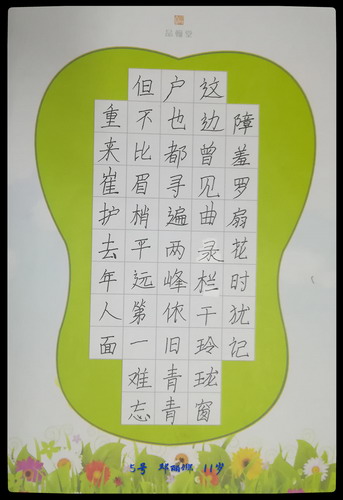 品翰堂
障羞罗扇花时犹记
这边曾见曲录栏干玲珑窗
户也都寻遍两峰依旧青青
但不比眉梢平远第一难忘
重来崔护去年人面
5号 11岁